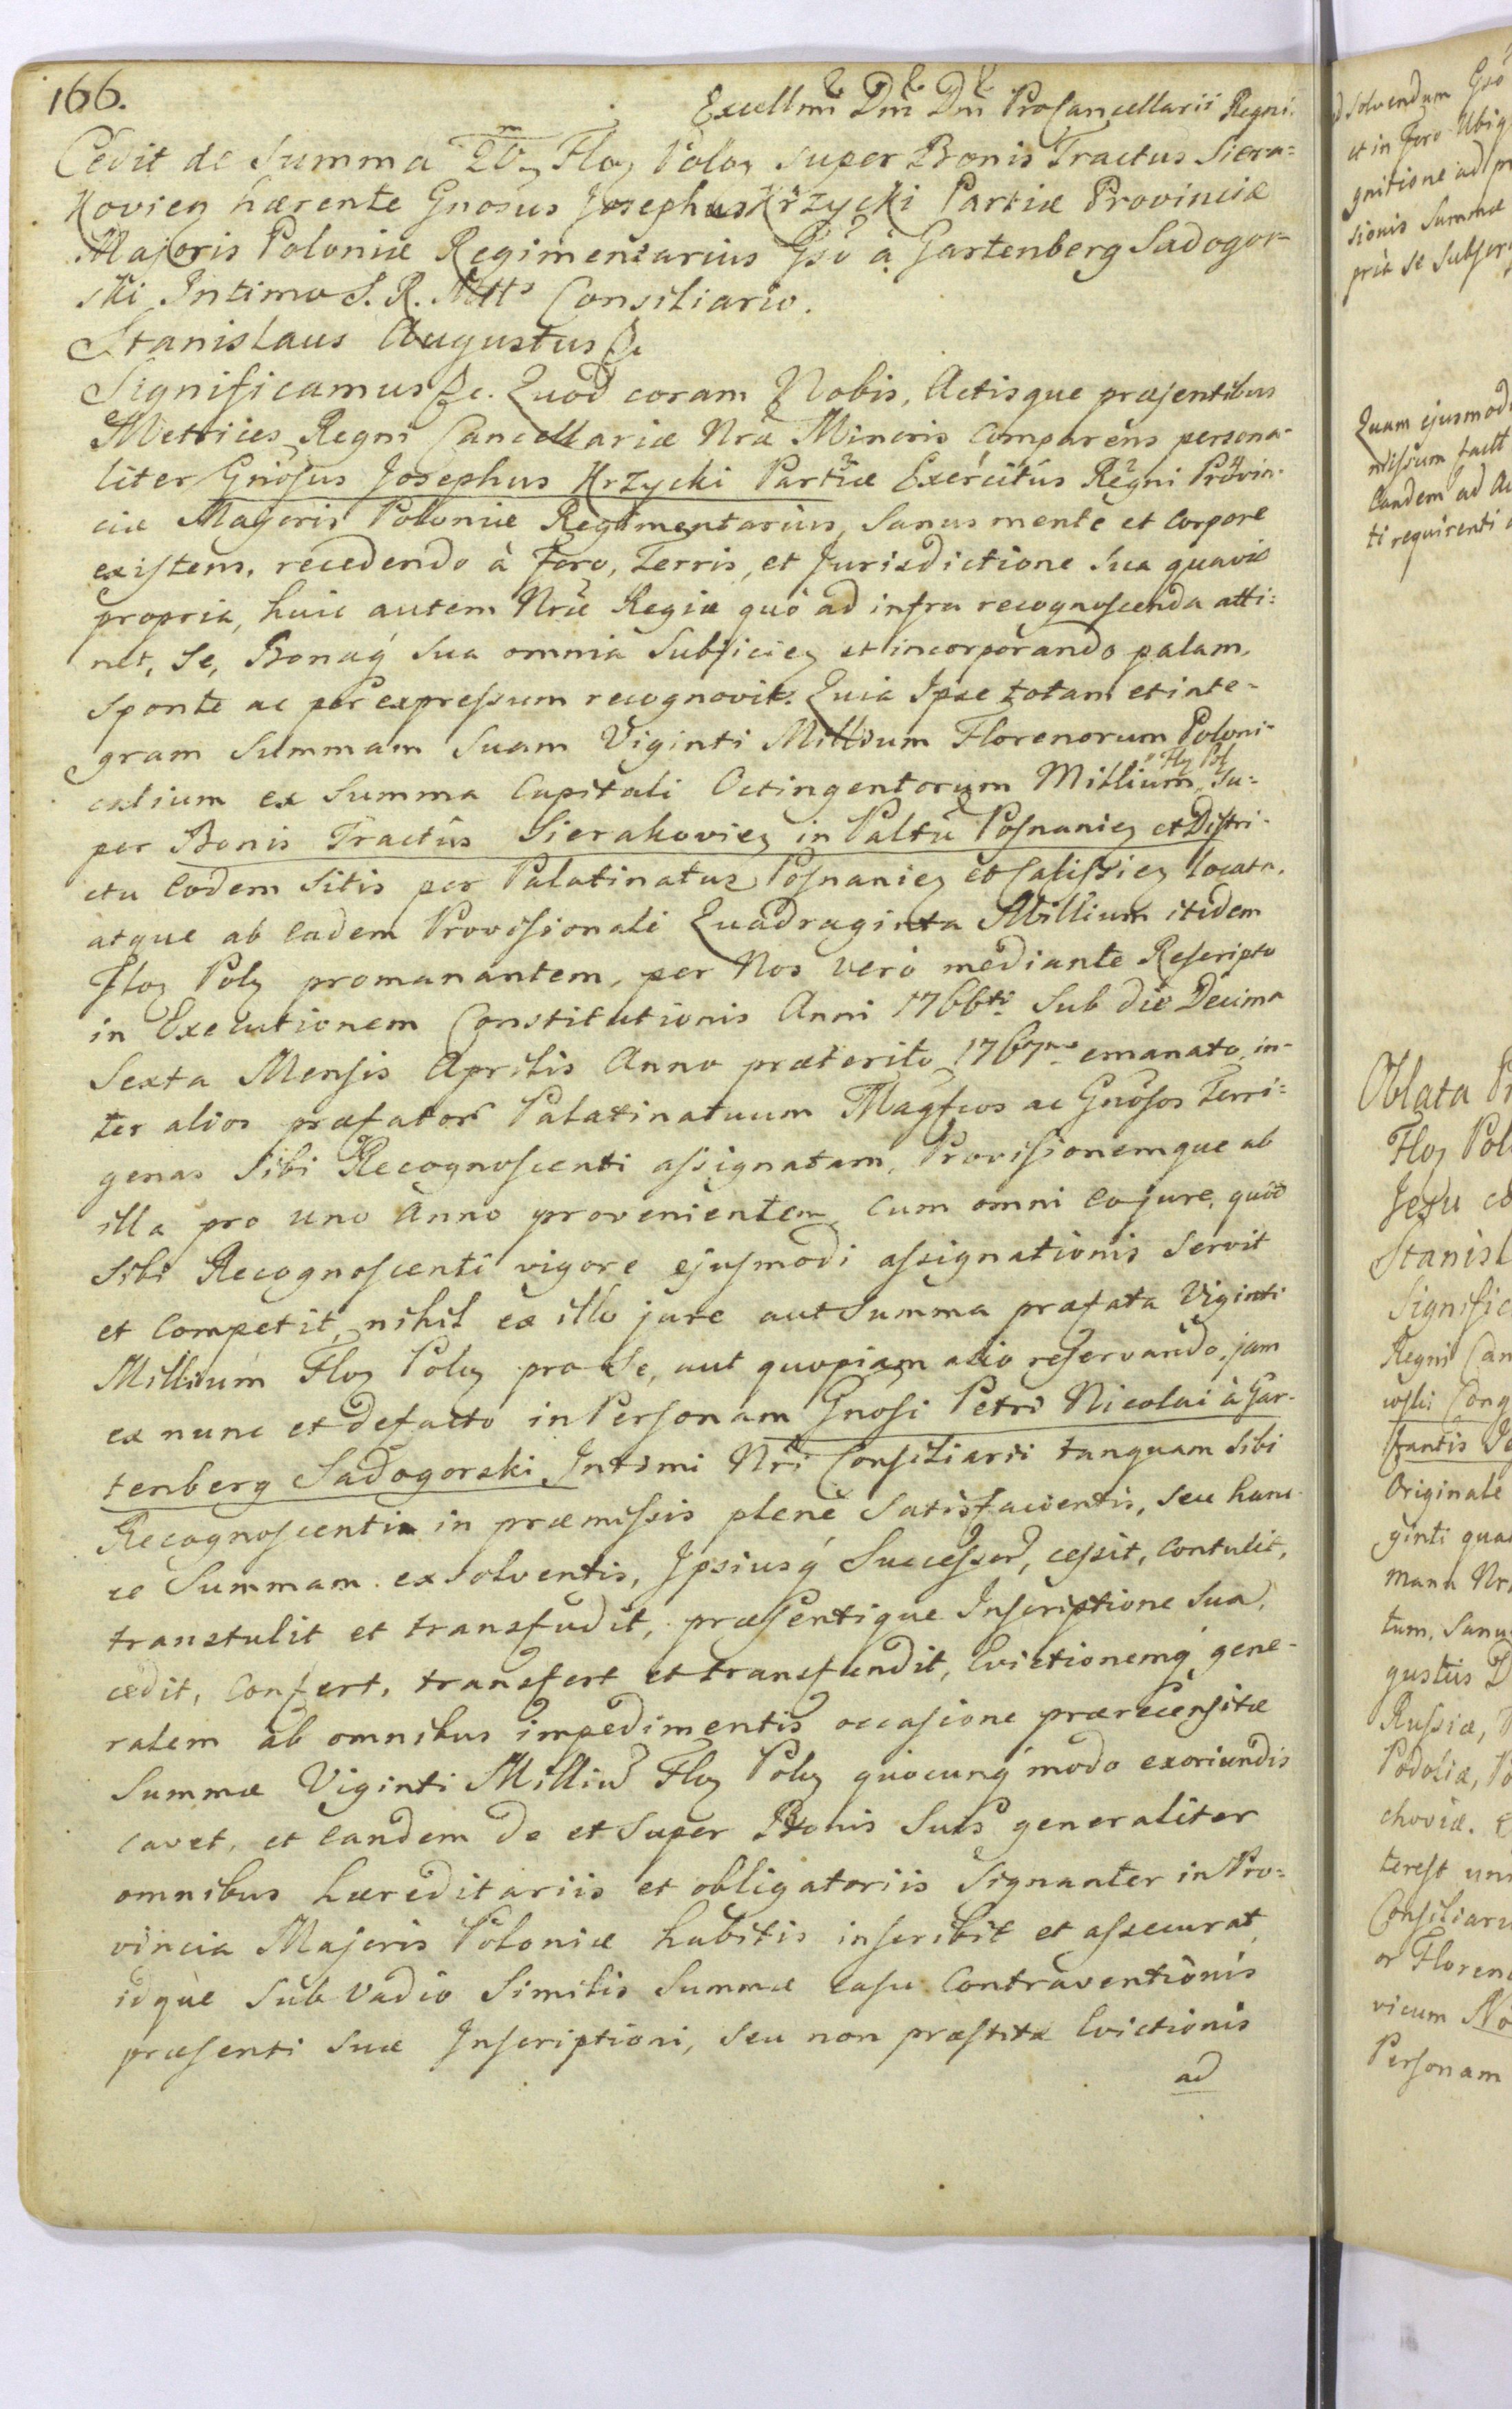 166.
Excellmi Dni Dni ProCancellarii Regni.
Cedit de Summa 20 m Flor Polon super Bonis Tractus Siera=
Kovien hærente Gnosus Josephus Krzycki Partiæ Provinciæ
Majoris Poloniæ Regimentarius Gso à Gartenberg Sadogor=
ski Intimo S. R. Mtts Consiliario.
Stanislaus Augustus &
Significamus &c. Quod coram Nobis, Actisque præsentibus
Metrices Regni Cancellariæ Nræ Minoris Comparens persona-
liter Gnosus Josephus Krzycki Partiæ Exercitûs Regni Provin-
ciæ Majoris Poloniæ Regimentarius, Sanus mente et Corpore
existens, recedendo à Foro, Terris, et Jurisdictione Sua quavis
propria, huic autem Nræ Regiæ quò ad infra recognoscenda atti=
net, Se, Bonaq Sua omnia Subjicien et incorporando palam,
Sponte ac per expressum recognovit. Quia Ipse totam et inte-
gram Summam Suam Viginti Millium Florenorum Poloni-
calium ex Summa Capitali Octingentorum Millium Flor Pol Su=
per Bonis Tractûs Sierakovien in Paltu Posnanien et Distri-
ctu Eodem Sitis per Palatinatus Posnanien et Calissien locata,
atque ab Eadem Provisionali Quadraginta Millium itidem
Flor Poln promanantem, per Nos verò mediante Rescripto
in Executionem Constitutionis Anni 1766ti Sub die Decima
Sexta Mensis Aprilis Anno præterito 1767mo emanato, in-
ter alios præfator Palatinatuum Magfcos ac Gnosos Terri=
genas Sibi Recognoscenti assignatam, Provisionemque ab
illa pro uno Anno provenientem, Cum omni Eo jure, quod
Sibi Recognoscenti vigore ejusmodi assignationis Servit
et Competit, nihil ex illo jure aut Summa præfata Viginti
Millium Flor Poln pro Se, aut quopiam alio reservando, jam
ex nunc et de facto in Personam Gnosi Petri Nicolai à Gar-
tenberg Sadogorski Intimi Nri Consiliarii tanquam Sibi
Recognoscenti in præmissis plenè Satisfacientis, Seu hanc-
ce Summam exsolventis, Ipsiusq Successor, cessit, Contulit,
transtulit et transfudit, præsentique Inscriptione Sua,
cedit, Confert, transfert et transfundit, Evictionemq gene-
ralem ab omnibus impedimentis occasione prærecensitæ
Summæ Viginti Milliu Flor Poln quocunq modo exoriundis
cavet, et Eandem de et Super Bonis Suis generaliter
omnibus hæreditariis et obligatoriis Signanter in Pro=
vincia Majoris Poloniæ habitis inscribit et assecurat,
idque Sub Vadio Similis Summæ Casu Contraventionis
præsenti Suæ Inscriptioni, Seu non præstitæ Evictionis
ad
Solvendum Gso
et in Foro Ubiq
gnitione ad
sionis Summæ
pria se Subscr
Quam ejusmodi
Eandem ad
ti requirenti
Oblata
Flor Pol
Jesu
Stanisl
Signific
Regni Can
Cong
Originale
ginti qua
manu Nr
tum, Sanu
gustus
Russiæ,
Podoliæ,
choviæ.
terest
Consiliari
or Floren
vicum No
Personam